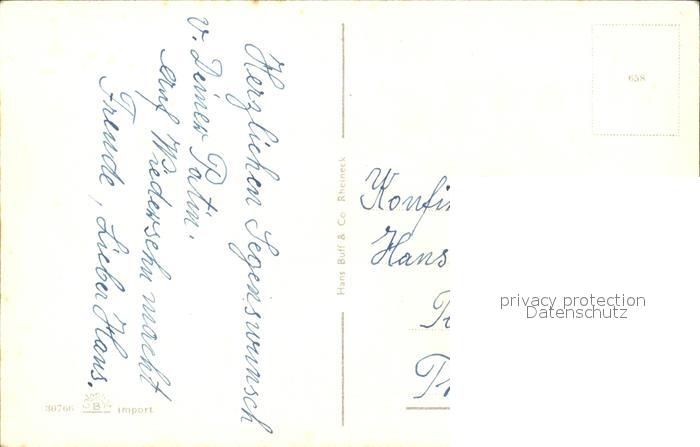 Herzlichen Segenswunsch
v. Deiner Patin.
Auf Wiedersehn macht
Freude, Lieber Hans.
Hans Buff & Co Rheineck
658
Konfi
Hans
privacy protection
Datenschutz
36766 B import